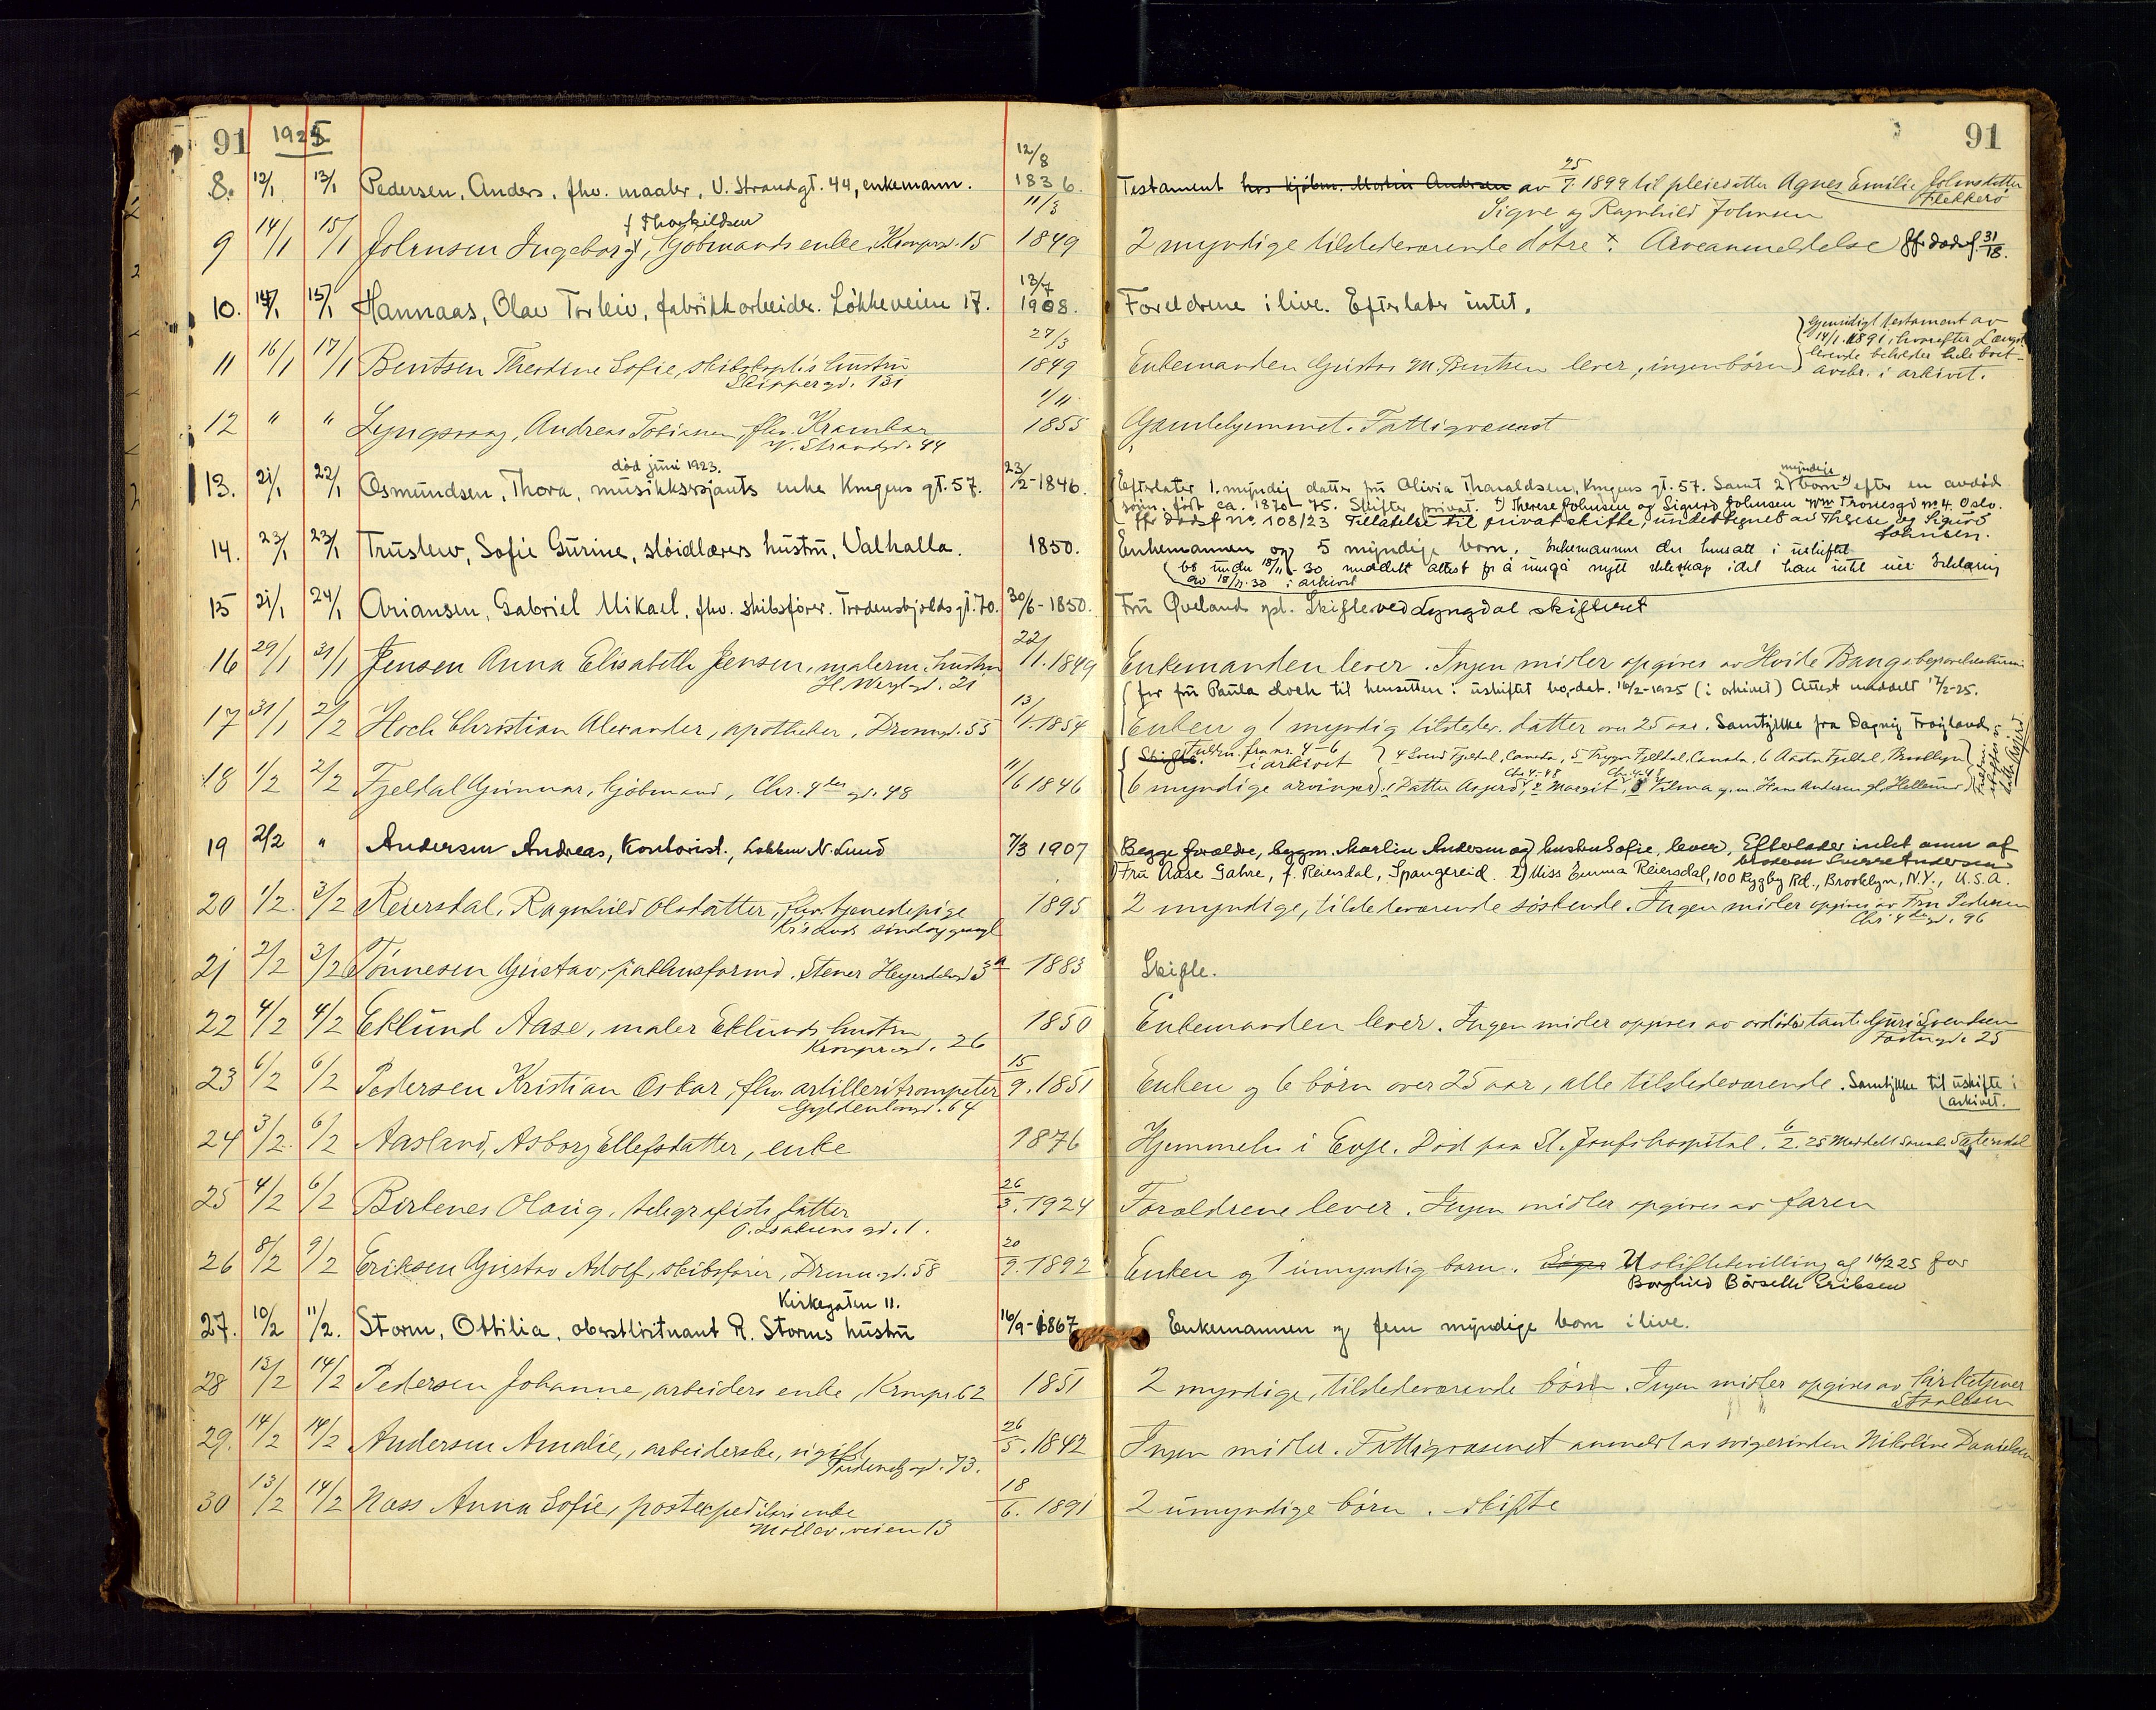 91 1925 91
8. 12/1 13/1 Pedersen, Anders, fhv. maaler, V. Strandgt. 44, enkemann. 12/8 1836. Testament hos kjøbm. Martin Andersen av 25/7 1899 til pleiedatter Agnes Emilie Johnsdatter Flekkerø
9 14/1 15/1 Johnsen Ingeborg, f Thorkildsen Kjøbmands enke, Kronprgd. 15 11/3 1849 2 myndige tilstedeværende døtre x: Arveanmeldelse ff. dødsf. 31/18.
Signe og Ragnhild Johnsen
10. 14/1 15/1 Hannaas, Olav Torleiv, fabrikkarbeider. Løkkeveien 17. 13/7 1908. Foreldrene ilive. Efterlater intet.
11 16/1 17/1 Bentsen Theodine Sofie, skibskapt's hustru 27/3 1849 Enkemanden Gustav M. Bentsen lever, ingen børn
Skippergd. 131
Gjensidigt testament av
14/1 1891, hvorefter Længst
levende beholder hele boet -
avskr. i arkivet.
12 " " Lyngvaag, Andreas Tobiasen, fhv. 1/11 1855 Gamlehjemmet. Fattigvæsenet
V. Strandgd. 44
13. 21/1 22/1 Osmundsen, Thora, musikksersjants enke Kongens gt. 57. 23/2-1846. Efterlater 1. myndig datter fru Olivia Tharaldsen, Kongens gt. 57. Samt 2 myndige børn x) efter en avdød
død juni 1923.
sønn, født ca. 1870-75. Skifter privat. x) Therese Johnsen og Sigurd Johnsen Wm Thranesgd nr 4. Oslo.
ffr dødsf nr. 108/23 Tillatelse til privat skifte, undertegnet av Therese og Sigurd Johnsen.
14. 23/1 23/1 Truslew, Sofie Gurine, sløidlærers hustru, Valhalla. 1850. Enkemannen og 5 myndige barn. Enkemannen der hensatt i uskiftet
bo under 18/11-30 meddelt attest for å inngå nytt ekteskap idet han intet eier Erklæring
av 18/11-30 i arkivet
15 21/1 24/1 Ariansen, Gabriel Mikael, fhv. skibsfører. Tordenskjolds gt. 70. 30/6-1850. Fru Øveland opl. Skifte ved Lyngdal skifterett
16 29/1 31/1 Jensen Anna Elisabeth Jensen, malerm. hustru 22/11. 1849 Enkemanden lever. Ingen midler opgives av Hvite Bangs begravelsesbureau
H. Wergl.gd. 21
for fru Paula Hoch til hensitten i uskiftet bo, dat. 16/2-1925 (i arkivet) Attest meddelt 17/2-25.
17 31/1 2/2 Hoch Christian Alexander, apotheker, Dronngd. 55 13/1.1854 Enken og 1 myndig tilstedev. datter over 25 aar. Samtykke fra Dagny Frøyland
18 1/2 2/2 Fjeldal Gunnar, Kjøbmand, Chr. 4des gd. 48 11/6 1846 6 myndige arvinger: 1 Datter Asgerd, 2 Margit, 3 Vilma g.m. Hans Andersen
Skifte. fra nr. 4-6 i arkivet 4 Canada, 5 Trygve Fjeldal, Canada, 6 Aasta Fjeldal, Brooklyn
19 2/2 " Andersen Andreas, Kontorist., Løkken N. Lund 7/3 1907 Begge forældre, byggm. Martin Andersen og hustru Sofie, lever. Efterlader intet annr af
broderen Sverre Andersen
1) Fru Aase Gahre, f. Reiersdal, Spangereid. 2) Miss Emma Reiersdal, 100 Rygby Rd., Brooklyn, N.Y., U.S.A.
20 1/2. 3/2 Reiersdal, Ragnhild Olsdatter, fhv. tjenestepige 1895 2 myndige, tilstedeværende søskende. Ingen midler opgives av Fru Pedersen
Kr's ands sindssygeasyl Chr 4 des gd. 96
21 2/2 3/2 Tönnesen Gustav, pakhusformd. Stener Heyerdalsgd 3a 1883 Skifte.
22 4/2 4/2 Eklund Aase, maler Eklunds hustru 1850 Enkemanden lever. Ingen midler opgives av avdødes tante Guri Svendsen
Kronprgd. 26 Festn.gd. 25
23 6/2 6/2 Pedersen Kristian Oskar, fhv. artilleritrompeter 15/9. 1851 Enken og 6 børn over 25 aar, alle tilstedeværende. Samtykke til uskifte i
Gyldenløvsgd. 64 arkivet.
24 3/2. 6/2 Aasland, Asborg Ellefsdatter, enke 1876 Hjemmehør i Evje. Död paa St. Josefs hospital. 6/2.25 Meddelt Sætersdal
25 4/2 6/2 Birkenes Olaug, telegrafists datter 26/3. 1924 Forældrene lever. Ingen midler opgives av faren
O. Isaksens gd. 1.
26 8/2 9/2 Eriksen Gustav Adolf, skibsfører, Dronn.gd. 58 20/9. 1892 Enken og 1 umyndig barn. Uskiftebevilling af 16/2 25 for
Borghild Börseth Eriksen
Kirkegaten 11.
27. 10/2 11/2. Storm, Ottilia, oberstløitnant R. Storms hustru 16/9-1867 Enkemannen og fem myndige barn ilive.
28 13/2 14/2 Pedersen Johanne, arbeiders enke, Kronpr. 62 1851 2 myndige, tilstedeværende børn. Ingen midler opgives av kirketjener
29. 14/2 14/2 Andersen Amalie, arbeiderske, ugift 26/5. 1842 Ingen midler. Fattigvæsenet anmeldt av svigerinden Nikoline Danielsen
gd. 73.
30 13/2 14/2 Næss Anna Sofie, postexpeditørs enke 18/6. 1891 2 umyndige børn. skifte
Møllev.veien 13